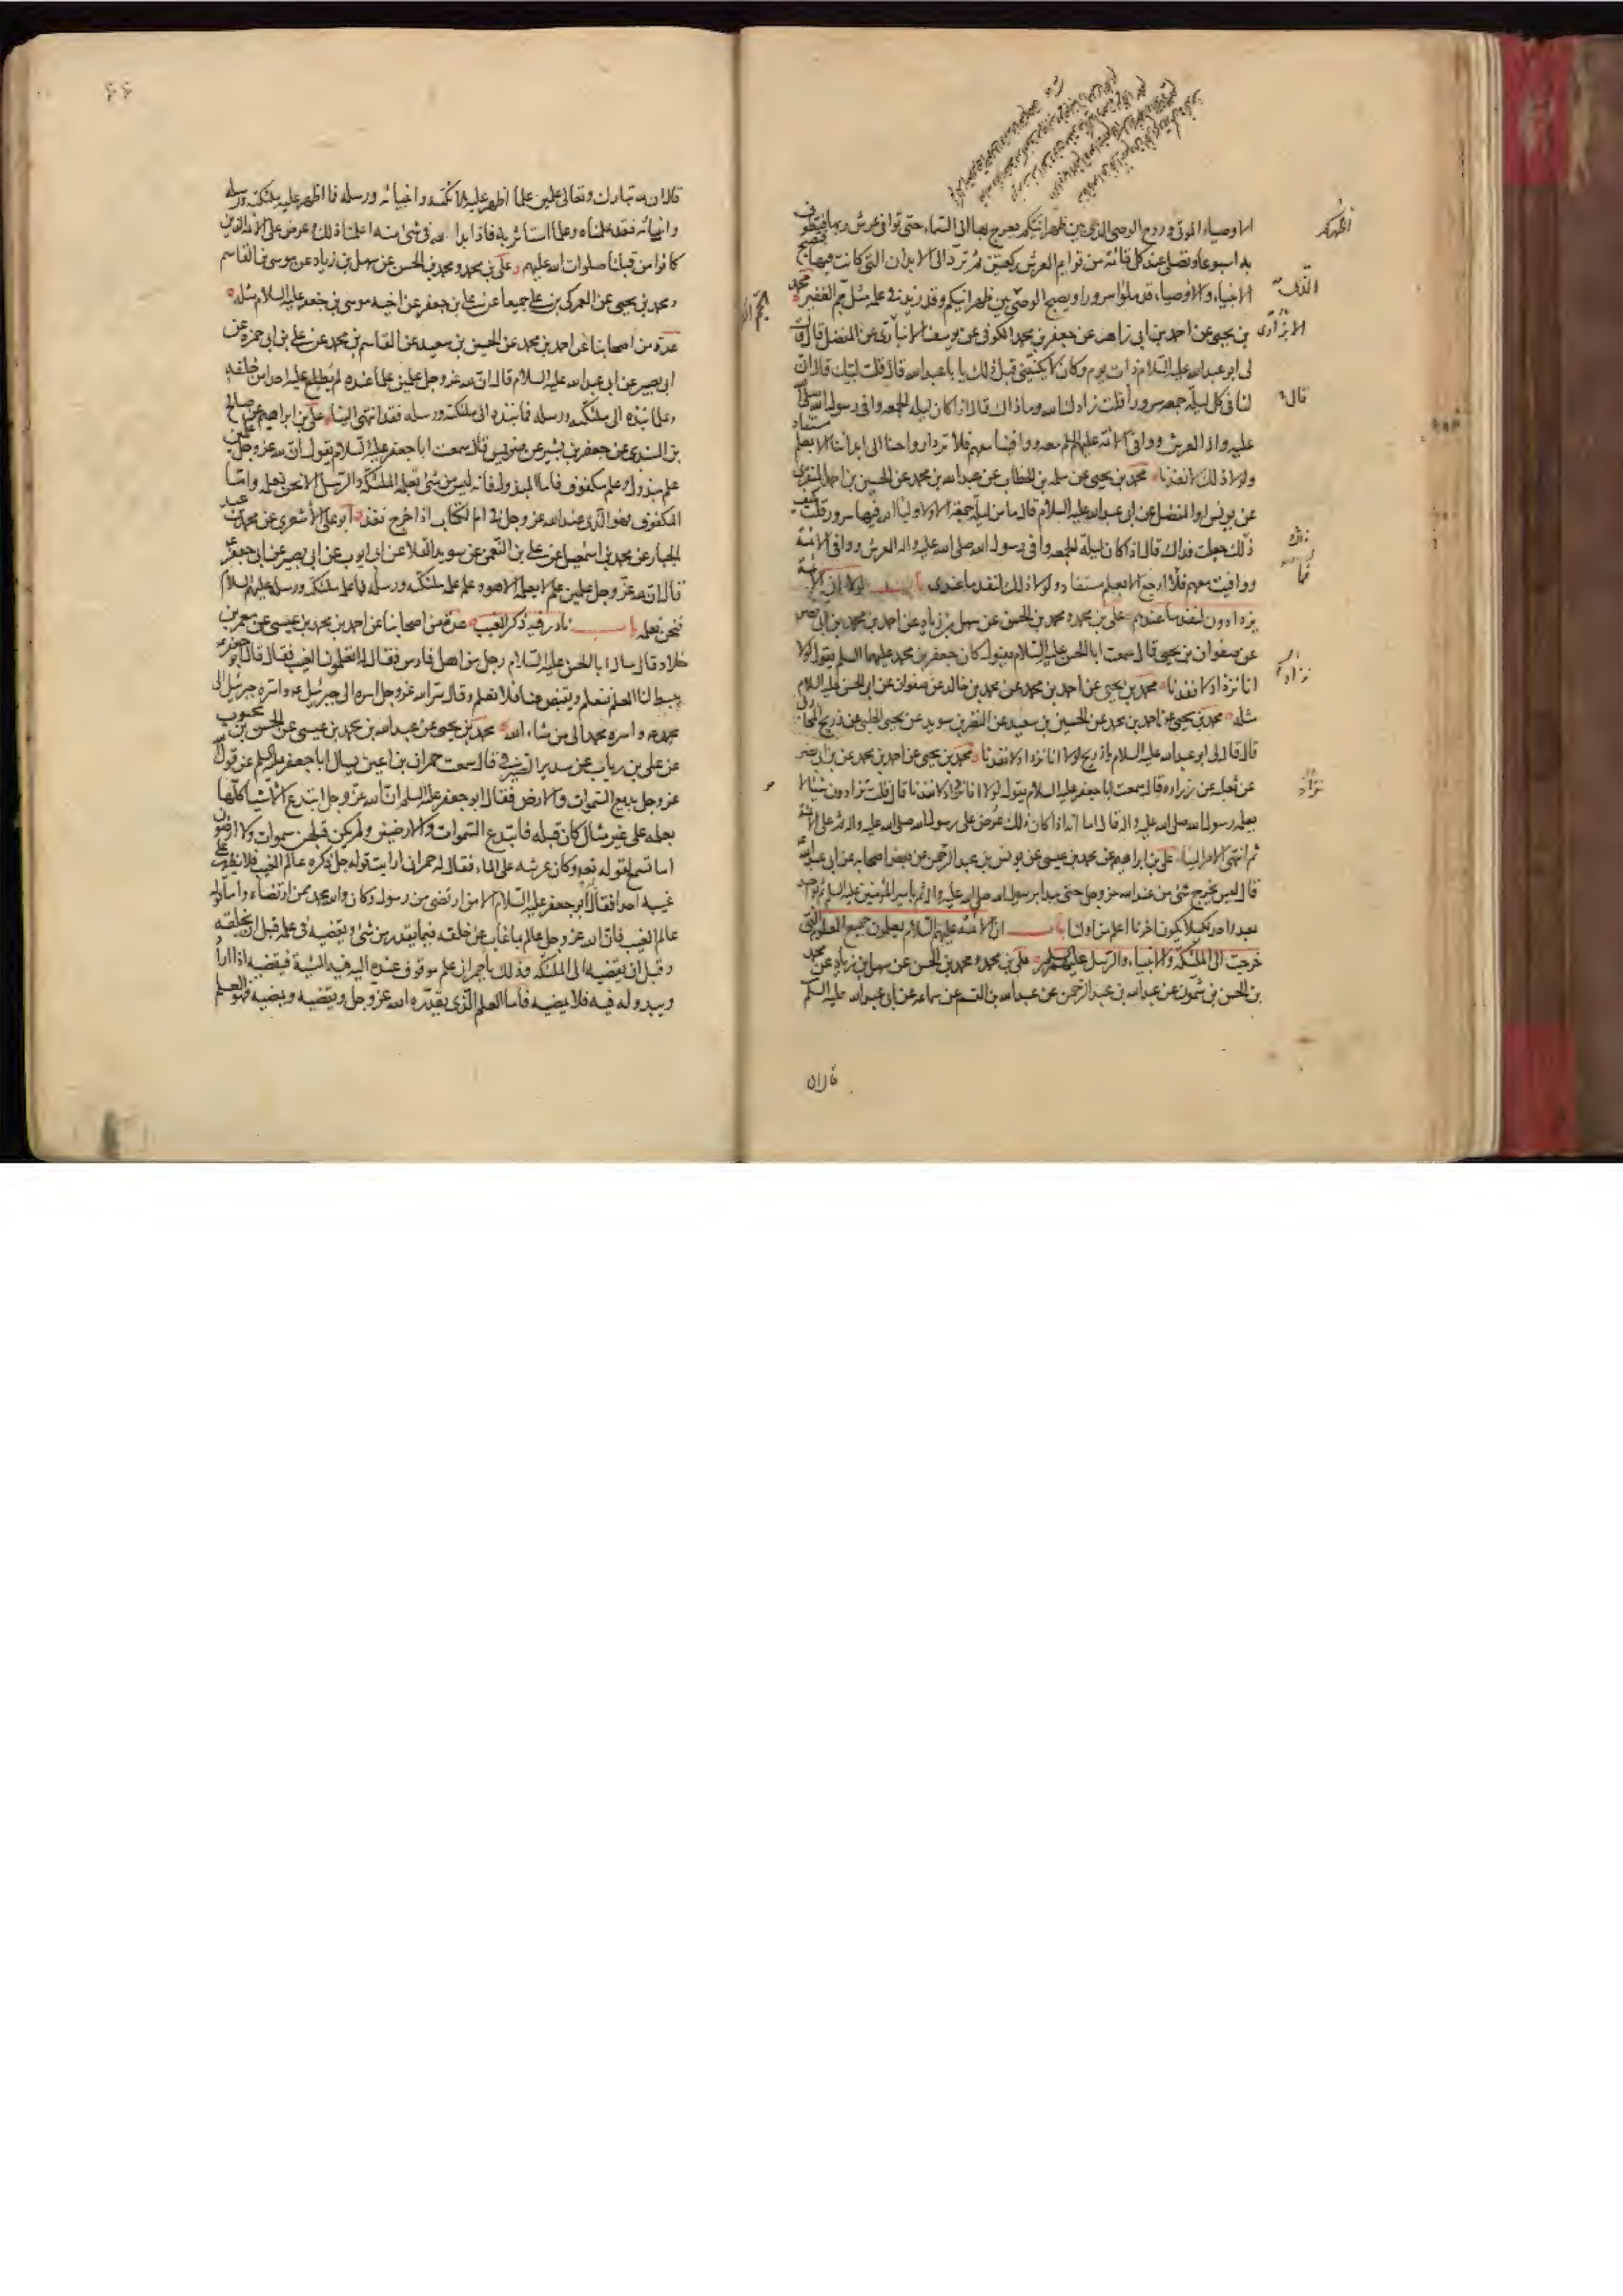 الاوصياء الموتى وروح الوصى الذى بين ظهرانيكم يعرج بها الى السماء حتى توافى عرش ربها فتطوف
به اسبوعا وتصلى عند كل قائمة من قوايم العرش ركعتين ثم ترد الى الابدان التى كانت فيها فتصبح
الانبياء والاوصياء قد ملؤا سرورا ويصبح الوصى بين ظهرانيكم وقد زيد فى علمه مثل جم الغفير محمد
بن يحيى عن احمد بن ابى زاهر عن جعفر بن محمد الكوفى عن يوسف الابزارى عن المفضل قال قال
لى ابو عبدالله عليه السلام ذات يوم وكان لا يكنينى قبل ذلك يا با عبدالله قال قلت لبيك قال ان
لنا فى كل ليلة جمعه سرورا قلت زادك الله وما ذاك قال اذا كان ليله الجمعه وافى رسول الله صلى
عليه واله العرش ووافى الائمة عليهم السلم معه ووافينا معهم فلا ترد ارواحنا الى ابداننا الا بعلم مستفاد
ولولا ذلك لانفدنا محمد بن يحيى عن سلمه بن الخطاب عن عبدالله بن محمد عن الحسين بن احمد المنقرى
عن يونس او المفضل عن ابى عبدالله عليه السلام قال ما من ليلة جمعة الا ولاولياء الله فيها سرور قلت كيف
ذلك جعلت فداك قال اذا كان ليلة الجمعه وافى رسول الله صلى الله عليه واله العرش ووافى الائمة
ووافيت معهم فلا ارجع الا بعلم مستفاد ولولا ذلك لنفد ما عندى باب لولا ان الائمة
يزدادون لنفد ما عندهم على بن محمد ومحمد بن الحسن عن سهل بن زياد عن احمد بن محمد بن ابى نصر
عن صفوان بن يحيى قال سمعت ابا الحسن عليه السلام يقول كان جعفر بن محمد عليهما السلم يقول لولا
انا نزداد لانفدنا محمد بن يحيى عن احمد بن محمد عن محمد بن خالد عن صفوان عن ابى الحسن عليه السلام
مثله محمد بن يحيى عن احمد بن محمد عن الحسين بن سعيد عن النضر بن سويد عن يحيى الحلبى عن ذريح المحاربى
قال قال لى ابو عبدالله عليه السلام يا ذريح لولا انا نزداد لانفدنا محمد بن يحيى عن احمد بن محمد عن بن ابى نصر
عن ثعلبه عن زراره قال سمعت ابا جعفر عليه السلام يقول لولا انا نزداد لانفدنا قال قلت تزدادون شيئا لا
يعلمه رسول الله صلى الله عليه واله قال اما انه اذا كان ذلك عرض على رسول الله صلى الله عليه واله ثم على الائمة
ثم انتهى الامر الينا على بن ابراهيم عن محمد بن عيسى عن يونس بن عبد الرحمن عن بعض اصحابه عن ابى عبدالله
قال ليس يخرج شئ من عند الله عز وجل حتى يبدا برسول الله صلى الله عليه واله ثم بامير المؤمنين عليه السلم ثم بواحد
بعد واحد لكيلا يكون اخرنا اعلم من اولنا باب ان الائمة عليهم السلام يعلمون جميع العلوم التى
خرجت الى الملئكة والانبياء والرسل عليهم السلم على بن محمد ومحمد بن الحسن عن سهل بن زياد عن محمد
بن الحسن بن شمون عن عبدالله بن عبد الرحمن عن عبدالله بن القسم عن سماعه عن ابى عبدالله عليه السلم
قال ان
الابزارى
قال
٤٤
قال ان لله تبارك وتعالى علمين علما اظهر عليه ملائكته وانبيائه ورسله فما اظهر عليه ملئكته ورسله
وانبيائه فقد علمناه وعلما استاثر به فاذا بدا لله فى شئ منه اعلمنا ذلك وعرض على الائمة الذين
كانوا من قبلنا صلوات الله عليهم على بن محمد ومحمد بن الحسن عن سهل بن زياد عن موسى بن القاسم
ومحمد بن يحيى عن العمركى بن على جميعا عن على بن جعفر عن اخيه موسى بن جعفر عليه السلام مثله
عدة من اصحابنا عن احمد بن محمد عن الحسين بن سعيد عن القاسم بن محمد عن على بن ابى حمزه عن
ابى بصير عن ابى عبدالله عليه السلام قال ان لله عز وجل علمين علما عنده لم يطلع عليه احدا من خلقه
وعلما نبذه الى ملئكته ورسله فما نبذه الى ملئكته ورسله فقد انتهى الينا على بن ابراهيم عن صالح
بن السندى عن جعفر بن بشير عن ضريس قال سمعت ابا جعفر عليه السلام يقول ان لله عز وجل علمين
علم مبذول وعلم مكفوف فاما المبذول فانه ليس من شئ تعلمه الملئكة والرسل الا نحن نعلمه واما
المكفوف فهو الذى عند الله عز وجل فى ام الكتاب اذا خرج نفذ ابو على الاشعرى عن محمد بن عبد
الجبار عن محمد بن اسمعيل عن على بن النعمن عن سويد القلا عن ابى ايوب عن ابى بصير عن ابى جعفر
قال ان لله عز وجل علمين علم لا يعلمه الا هو وعلم علمه ملئكته ورسله فما علمه ملئكته ورسله عليهم السلام
فنحن نعلمه باب نادر فيه ذكر الغيب عدة من اصحابنا عن احمد بن محمد بن عيسى عن معمر بن
خلاد قال سال ابا الحسن عليه السلام رجل من اهل فارس فقال له اتعلمون الغيب فقال قال ابو جعفر
يبسط لنا العلم فنعلم ويقبض عنا فلا نعلم وقال سر الله عز وجل اسره الى جبرئيل واسره جبرئيل الى
محمد واسره محمد الى من شاء الله محمد بن يحيى عن عبدالله بن محمد بن عيسى عن الحسن بن محبوب
عن على بن رياب عن سدير الصيرفى قال سمعت حمران بن اعين يسال ابا جعفر عليه السلم عن قول
عز وجل بديع السموات والارض فقال ابو جعفر عليه السلم ان الله عز وجل ابتدع الاشياء كلها
بعلمه على غير مثال كان قبله فابتدع السموات والارضين ولم يكن قبلهن سموات ولا ارضون
اما تسمع لقوله وكان عرشه على الماء فقال له حمران ارايت قوله جل ذكره عالم الغيب فلا يظهر على
غيبه احدا فقال ابو جعفر عليه السلام الا من ارتضى من رسول وكان والله محمد ممن ارتضاه واما قوله
عالم الغيب فان الله عز وجل عالم بما غاب عن خلقه فيما يقدر من شئ ويقضيه فى علمه قبل ان يخلقه
وقبل ان يقضيه الى الملئكة فذلك يا حمران علم موقوف عنده اليه فيه المشية فيقضيه اذا اراد
ويبدو له فيه فلا يمضيه فاما العلم الذى يقدره الله عز وجل ويقضيه ويمضيه فهو العلم